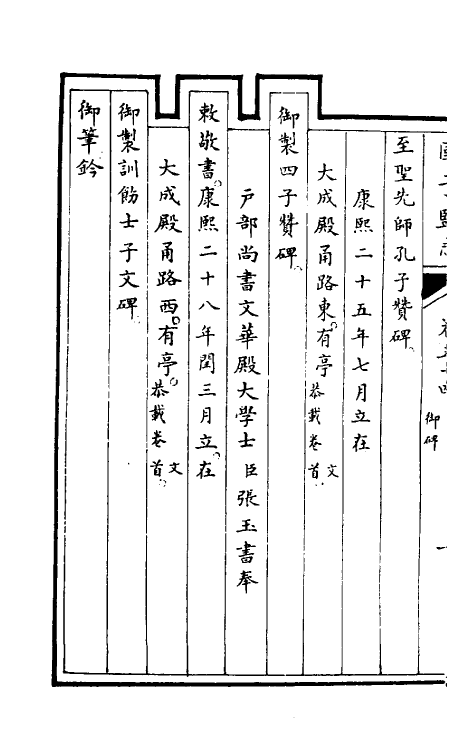 至聖先師孔子贊碑
康熙二十五年七月立在
大成殿甬路東有亭文恭載卷首
御製四子贊碑
戶部尚書文華殿大學士臣張玉書奉
敕敬書康熙二十八年閏三月立在
大成殿甬路西有亭文恭載卷首
御製訓飭士子文碑
御筆鈐
御碑
一